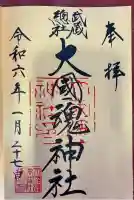 奉拝
武蔵
總社
大國魂神社
令和六年一月二十七日